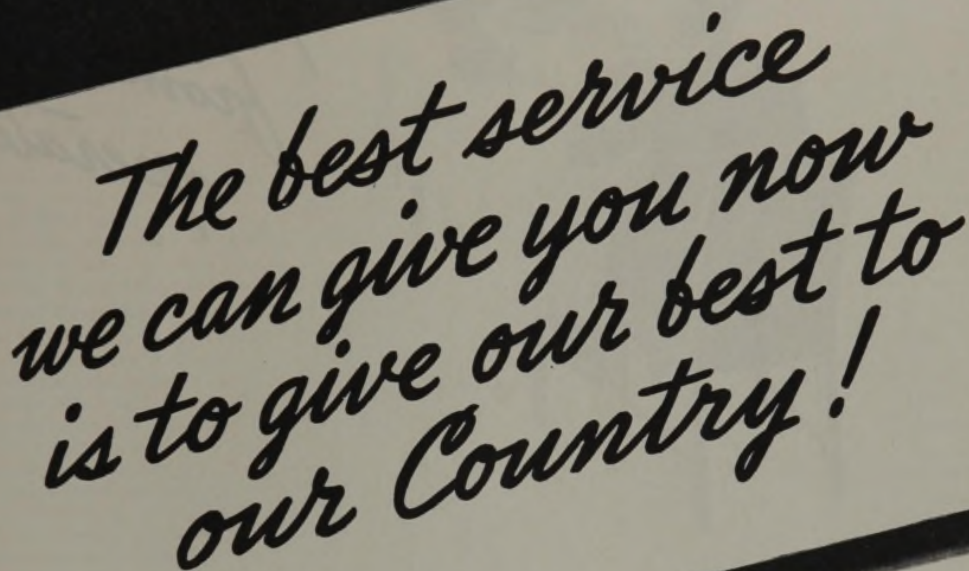 The best service
we can give you now
is to give our best to
our Country!